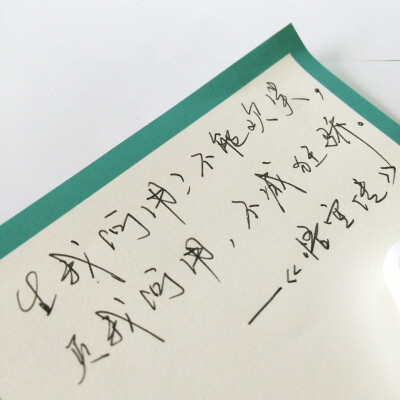 生我何用?不能欢笑,
灭我何用,不减狂骄。
—《悟空传》